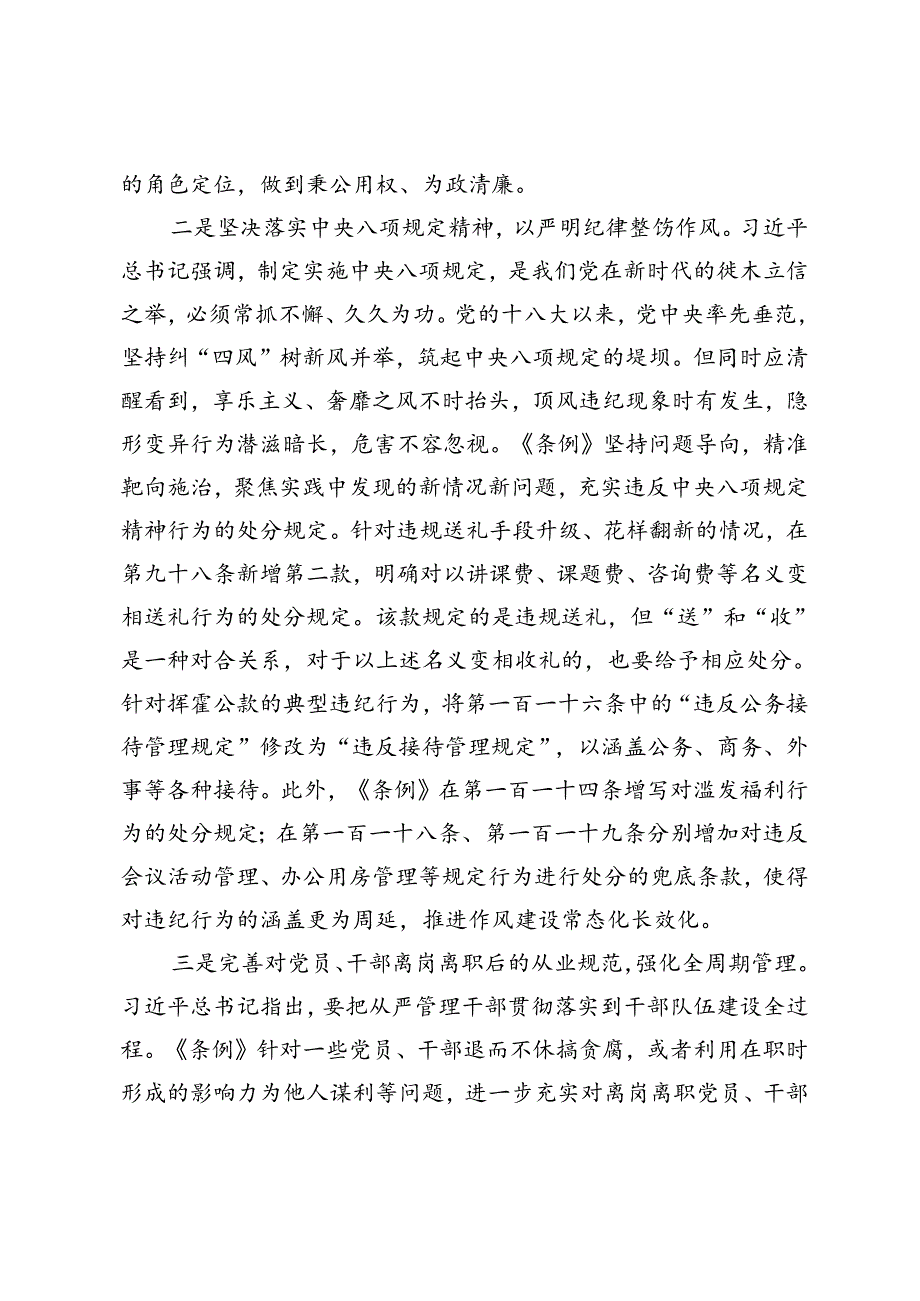 的角色定位，做到秉公用权、为政清廉。
二是坚决落实中央八项规定精神，以严明纪律整饬作风。习近平
总书记强调，制定实施中央八项规定，是我们党在新时代的徙木立信
之举，必须常抓不懈、久久为功。党的十八大以来，党中央率先垂范，
坚持纠“四风”树新风并举，筑起中央八项规定的堤坝。但同时应清
醒看到，享乐主义、奢靡之风不时抬头，顶风违纪现象时有发生，隐
形变异行为潜滋暗长，危害不容忽视。《条例》坚持问题导向，精准
靶向施治，聚焦实践中发现的新情况新问题，充实违反中央八项规定
精神行为的处分规定。针对违规送礼手段升级、花样翻新的情况，在
第九十八条新增第二款，明确对以讲课费、课题费、咨询费等名义变
相送礼行为的处分规定。该款规定的是违规送礼，但“送”和“收”
是一种对合关系，对于以上述名义变相收礼的，也要给予相应处分。
针对挥霍公款的典型违纪行为，将第一百一十六条中的“违反公务接
待管理规定”修改为“违反接待管理规定”，以涵盖公务、商务、外
事等各种接待。此外，《条例》在第一百一十四条增写对滥发福利行
为的处分规定；在第一百一十八条、第一百一十九条分别增加对违反
会议活动管理、办公用房管理等规定行为进行处分的兜底条款，使得
对违纪行为的涵盖更为周延，推进作风建设常态化长效化。
三是完善对党员、干部离岗离职后的从业规范，强化全周期管理。
习近平总书记指出，要把从严管理干部贯彻落实到干部队伍建设全过
程。《条例》针对一些党员、干部退而不休搞贪腐，或者利用在职时
形成的影响力为他人谋利等问题，进一步充实对离岗离职党员、干部